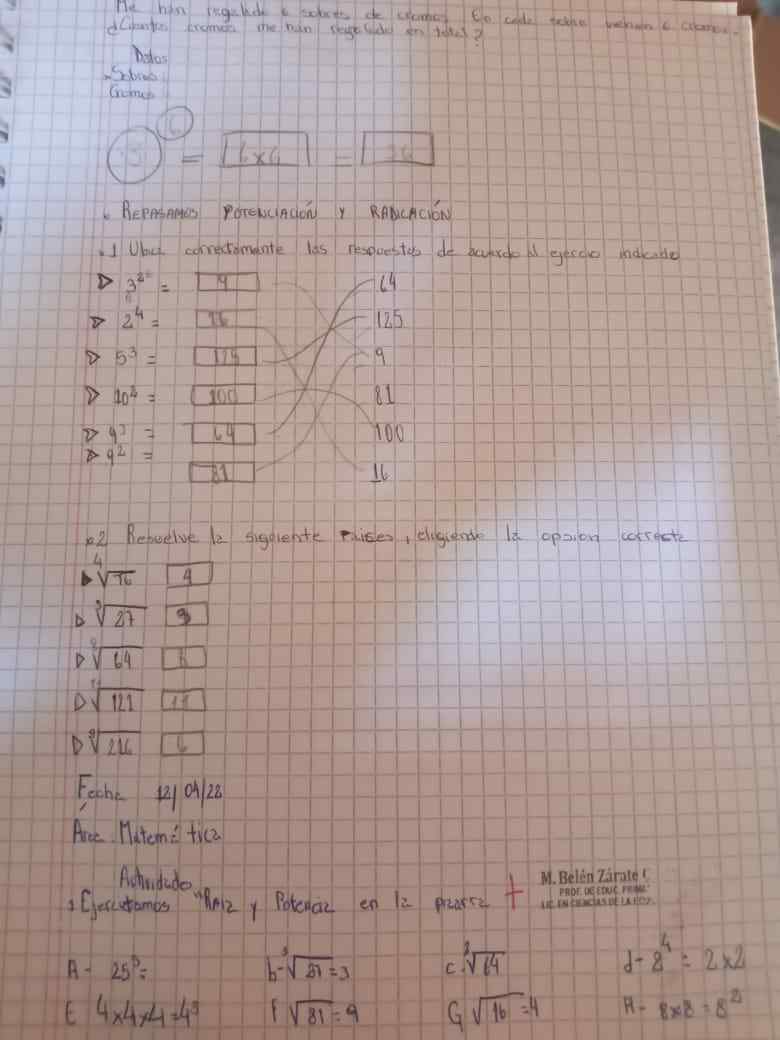 Me han regalado 6 sobres de cromos. En cada sobre vienen 6 cromos.
¿Cuantos cromos me han regalado en total?
Datos
Sobres:
Cromos
6
= 6x6 = 36
REPASAMOS POTENCIACIÓN Y RADICACIÓN
1 Ubica correctamente las respuestas de acuerdo al ejercicio indicado
3² = 9 64
2⁴ = 16 125
5³ = 125 9
10² = 100 81
4³ = 64 100
9² = 81 16
2 Resuelve la siguiente raises, eligiendo la opsion correcta
⁴√16 4
³√27 3
√64
√121 11
³√216 6
Fecha 12/04/23
Área: Matemática
Actividades
1 Ejercitamos "Raiz y Potencia en la pizarra
M. Belén Zárate
PROF. DE EDUC. PRIM.
LIC. EN CIENCIAS DE LA EDUC.
A- 25³= b- ³√27=3 c. ³√64 d- 8⁴ = 2x2
E 4x4x4=4³ F √81=9 G √16=4 H- 8x8=8²